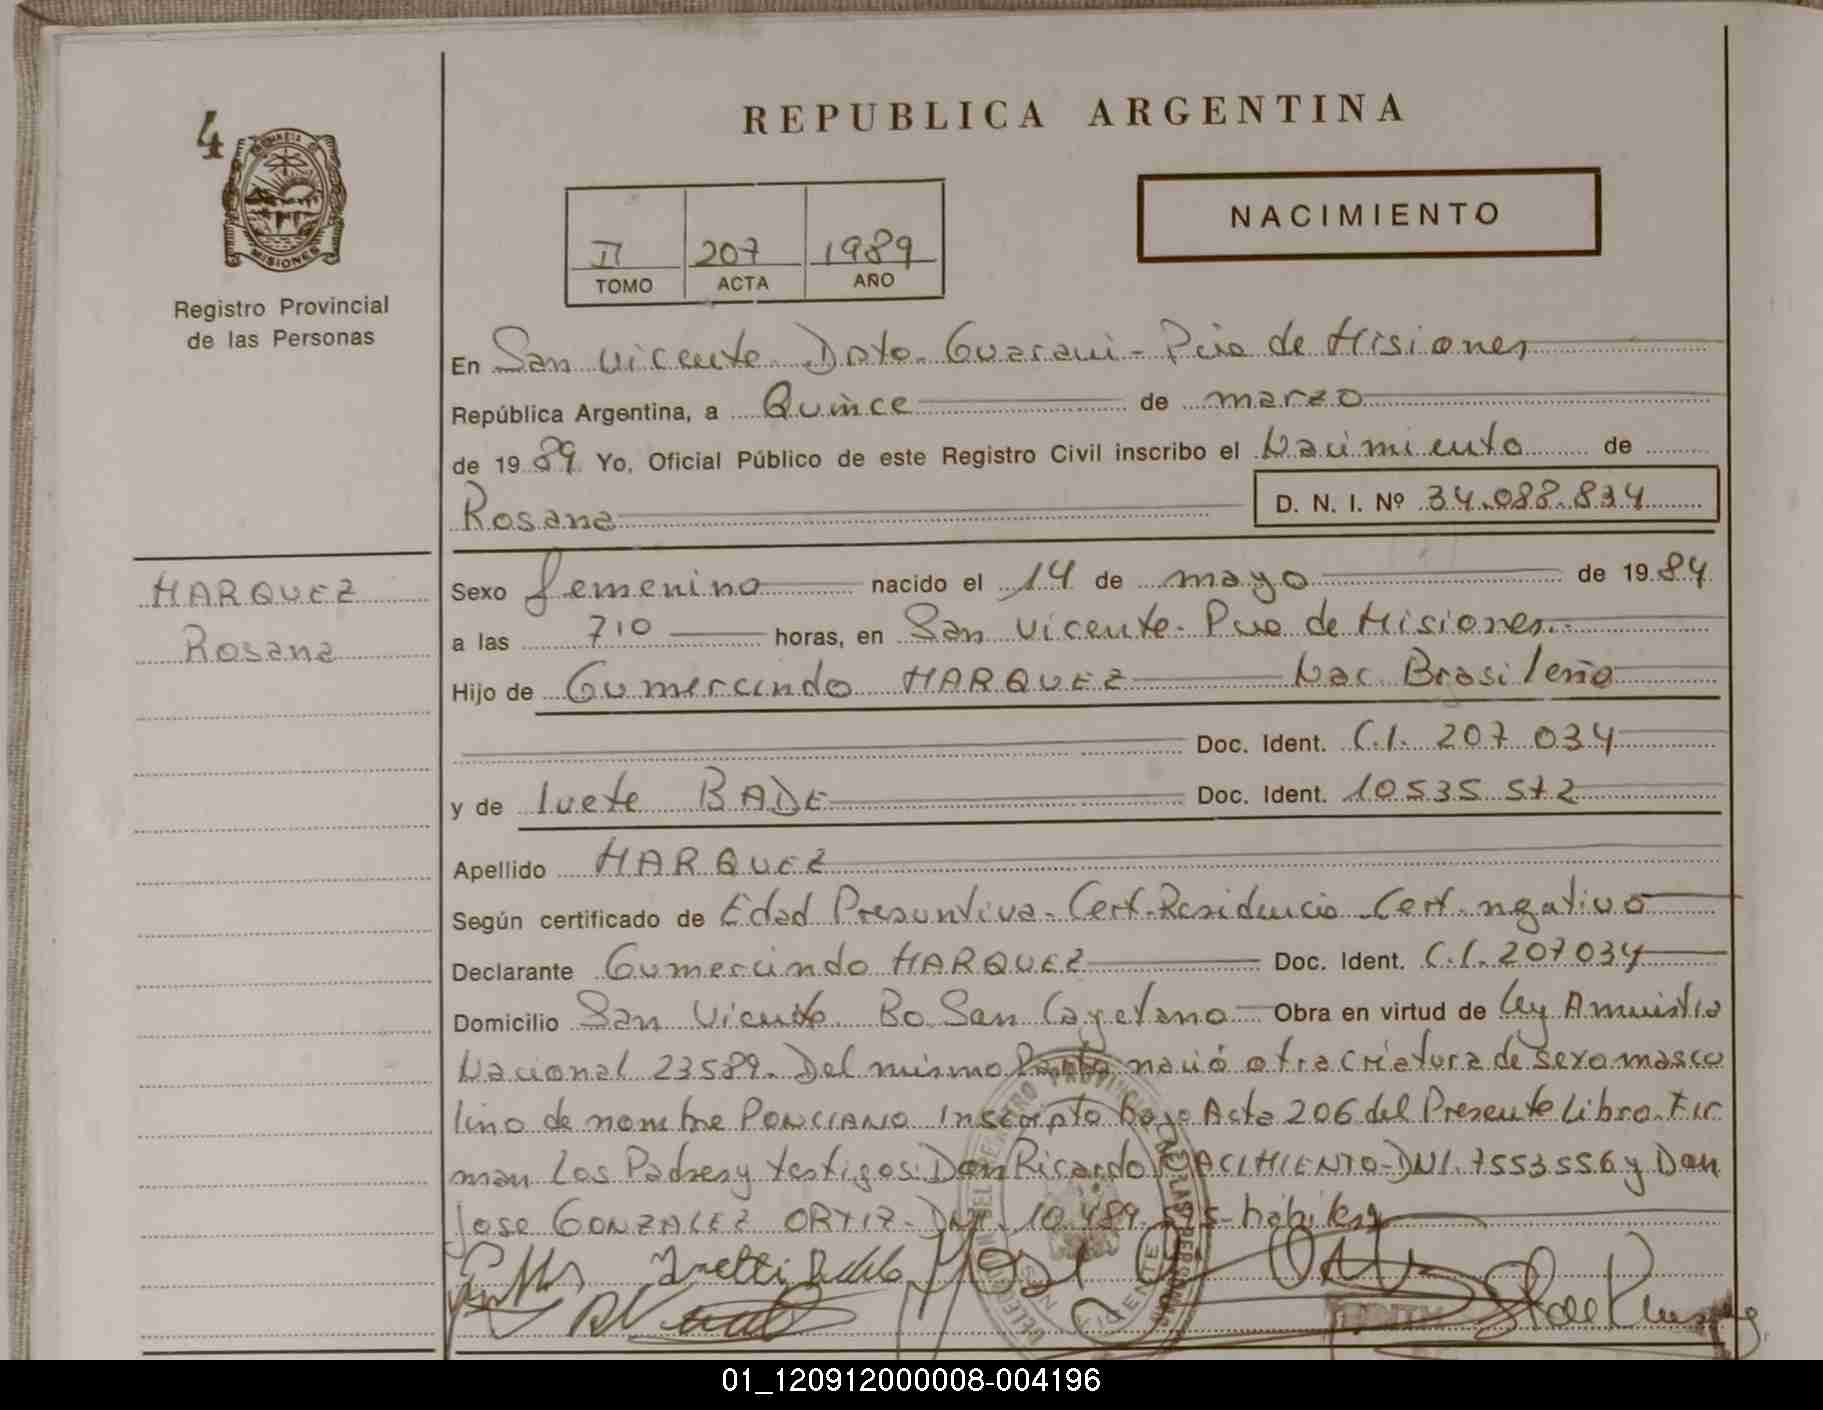 4
PROVINCIA DE
MISIONES
Registro Provincial
de las Personas
MARQUEZ
Rosana
REPUBLICA ARGENTINA
NACIMIENTO
II 207 1989
TOMO ACTA AÑO
En San Vicente Dpto. Guarani - Pcia de Misiones
República Argentina, a Quince de marzo
de 1989 Yo, Oficial Público de este Registro Civil inscribo el Nacimiento de
Rosana D. N. I. Nº 34.088.834
Sexo femenino nacido el 14 de mayo de 1984
a las 7,10 horas, en San Vicente - Pcia de Misiones.
Hijo de Gumercindo MARQUEZ Nac. Brasileña
Doc. Ident. C.I. 207 034
y de Ivete BADE Doc. Ident. 10 535 572
Apellido MARQUEZ
Según certificado de Edad Presuntiva - Cert. Residencia - Cert. ngativo
Declarante Gumercindo MARQUEZ Doc. Ident. C.I. 207034
Domicilio San Vicente Bo San Cayetano Obra en virtud de Ley Amnistia
Nacional 23589. Del mismo Parto nació otra criatura de sexo mascu
lino de nombre PONCIANO Inscripto bajo Acta 206 del Presente Libro. Fir
man Los Padres y testigos: Don Ricardo NACIMIENTO - DNI. 7553556 y Don
Jose GONZALEZ ORTIZ - DNI. 10.489. - habiles
01_120912000008-004196